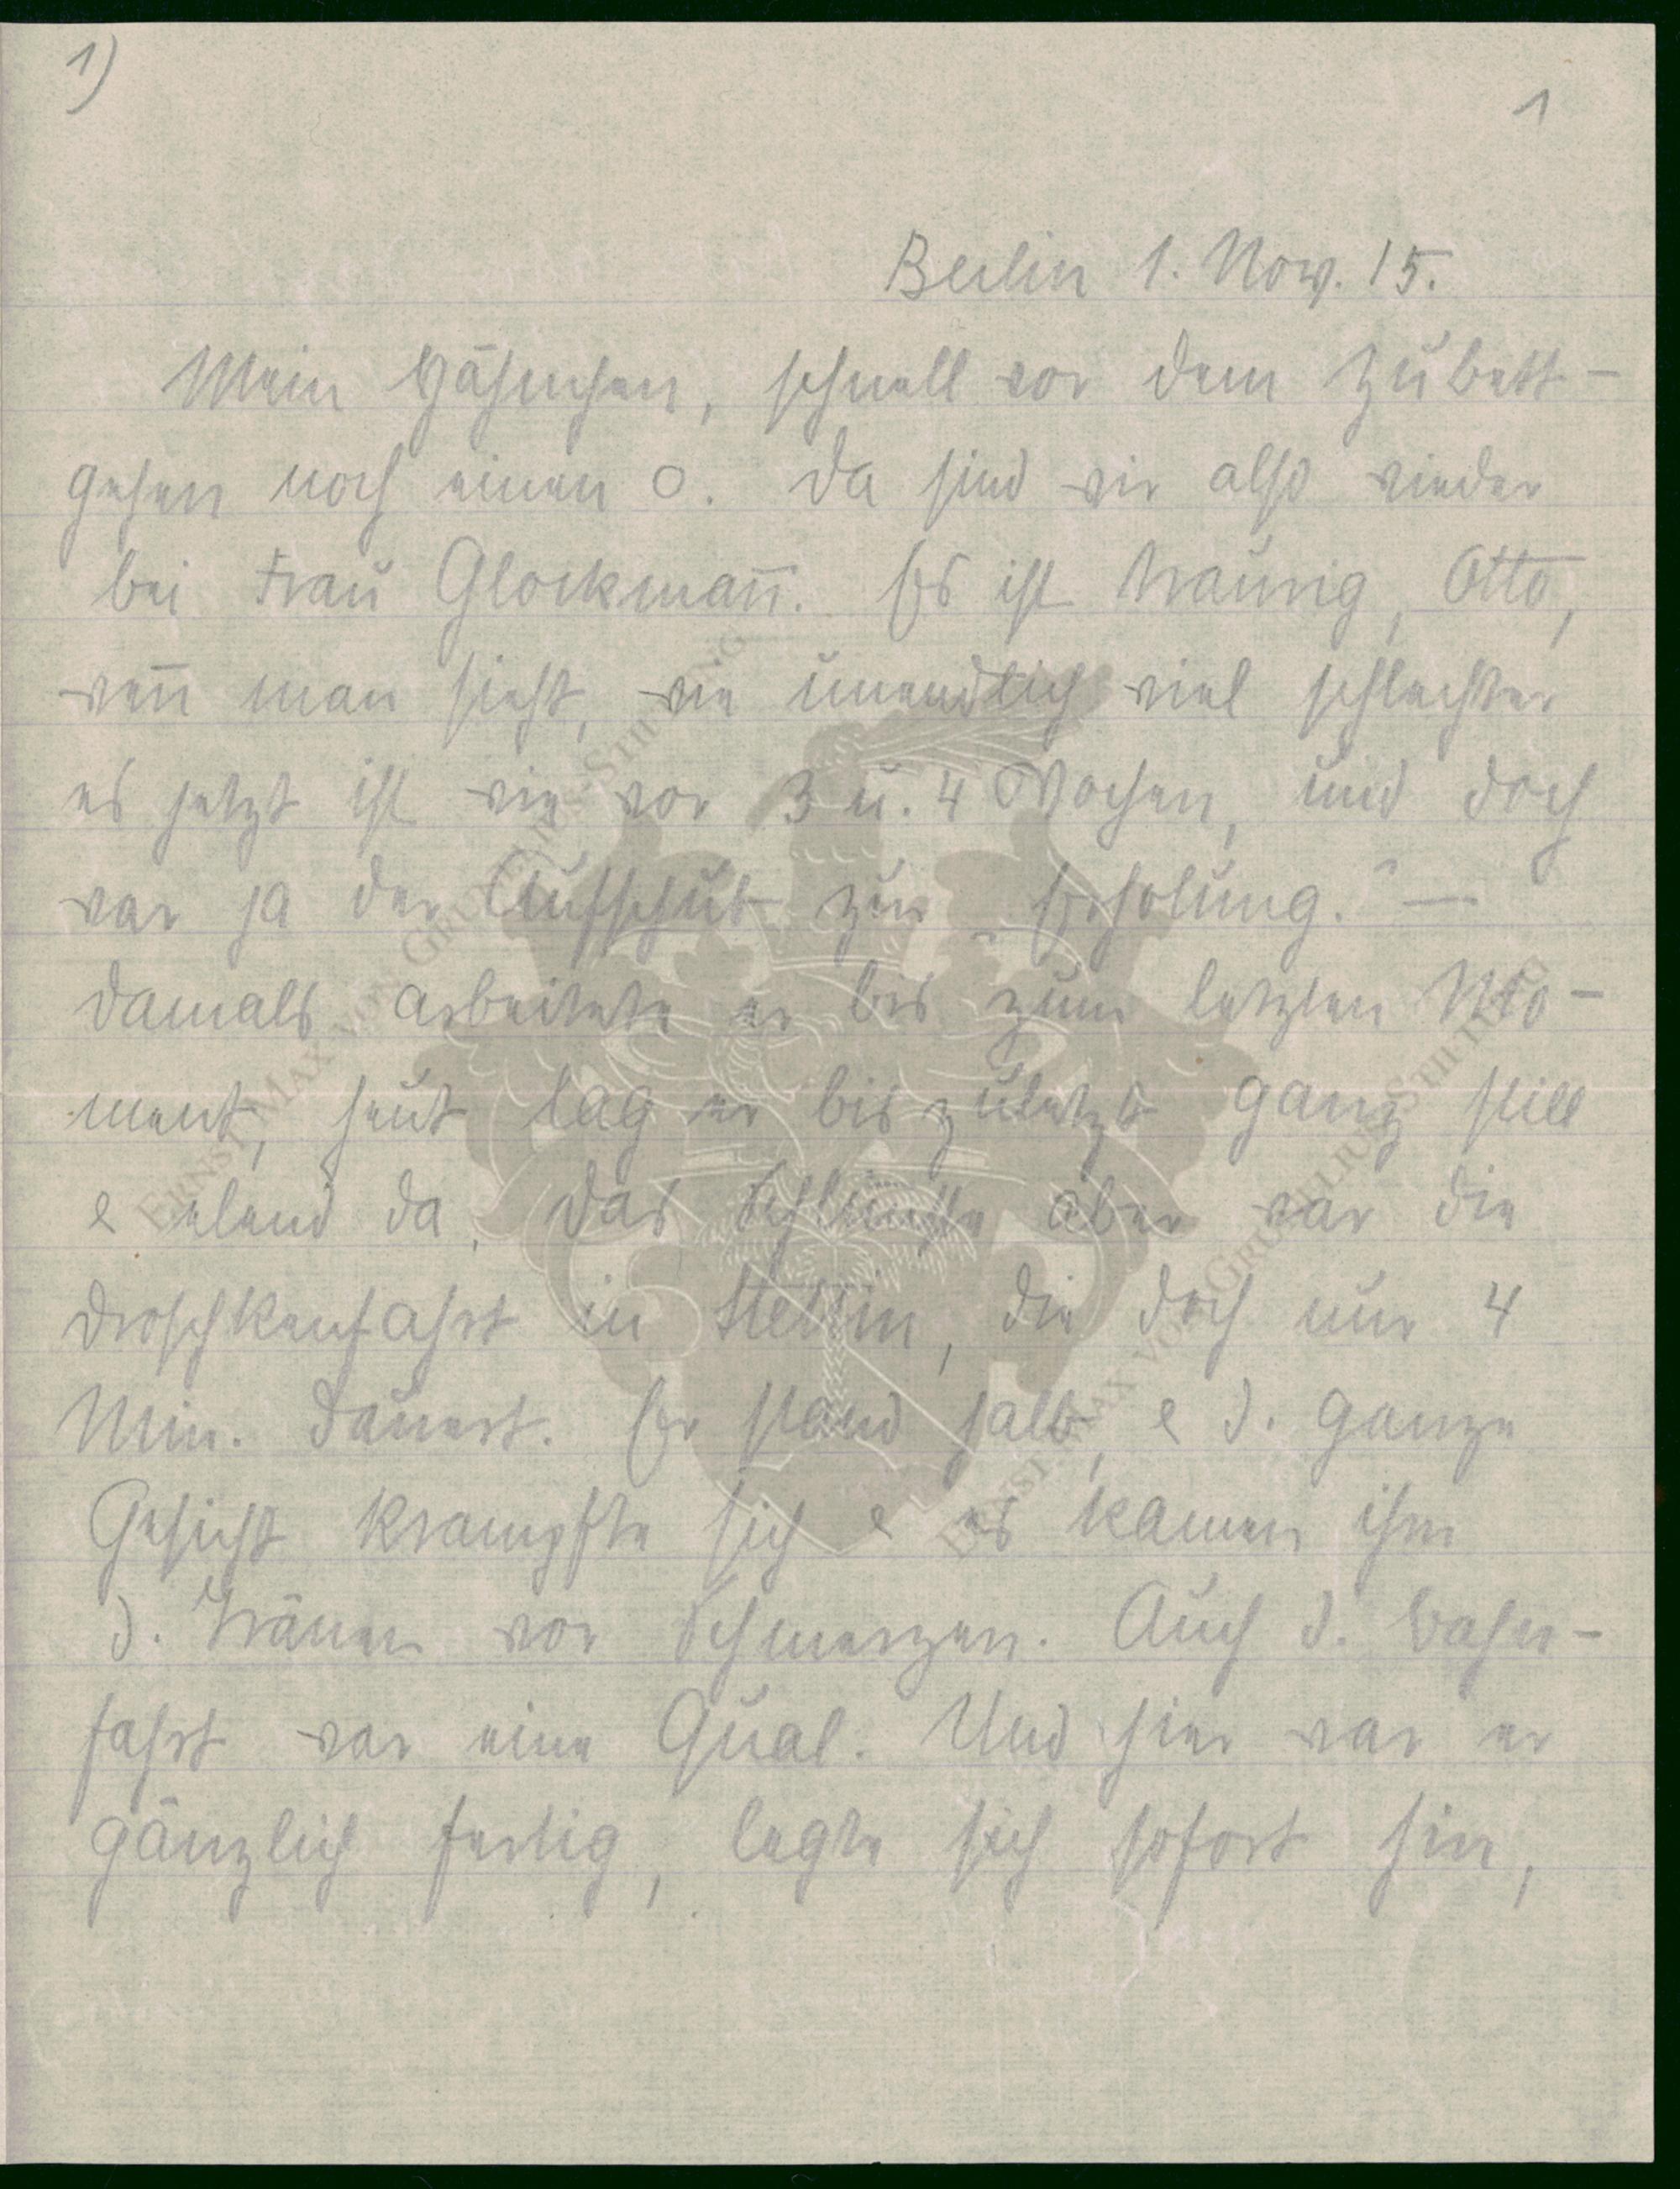 1)
1
Berlin 1. Nov. 15.
Mein Hähnchen, schnell vor dem Zubett-
gehen noch einen o. Da sind wir also wieder
bei Frau Glockman̄. Es ist traurig, Otto,
wen̄ man sieht, wie unendlich viel schlechter
es jetzt ist wie vor 3 u. 4 Wochen, und doch
war ja der Aufschub zur „Erholung." —
Damals arbeitete er bis zum letzten Mo-
ment, heut lag er bis zuletzt ganz still
& elend da. Das Schlimmste aber war die
Droschkenfahrt in Stettin, die doch nur 4
Min. dauert. Er stand halb, & d. ganze
Gesicht krampfte sich & es kamen ihm
d. Tränen vor Schmerzen. Auch d. Bahn-
fahrt war eine Qual. Und hier war er
gänzlich fertig, legte sich sofort hin,
ERNST MAX VON GRUNELIUS-STIFTUNG
ERNST MAX VON GRUNELIUS-STIFTUNG